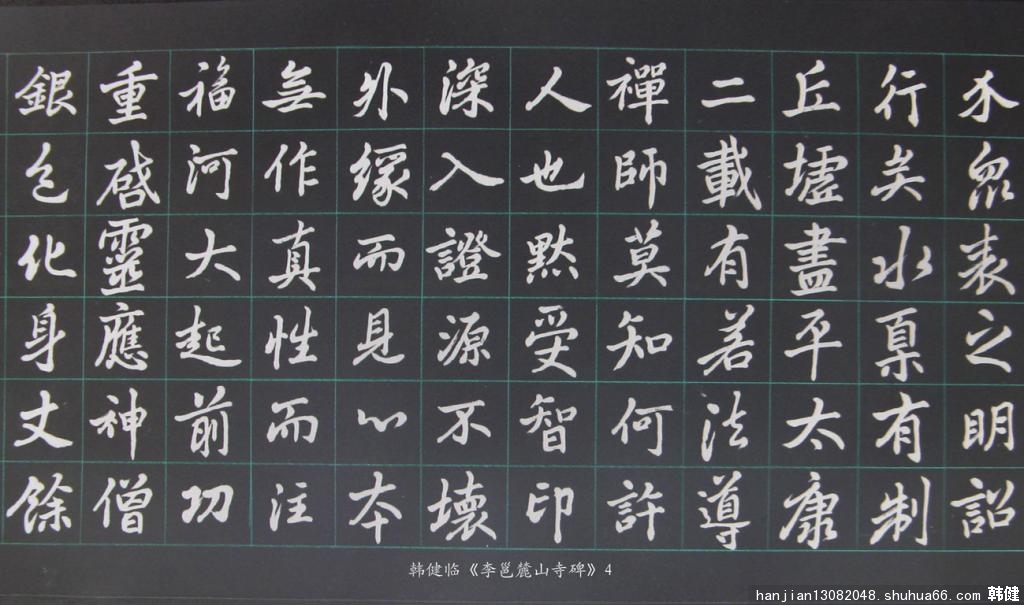 木衆表之明詔
行矣水臬有制
丘墟盡平太康
二載有若法導
禪師莫知何許
人也默受智印
深入證源不壞
外緣而見心本
無作真性而注
福河大起前功
重啓靈應神僧
銀色化身丈餘
韩健临《李邕麓山寺碑》4
hanjian13082048.shuhua66.com 韩健